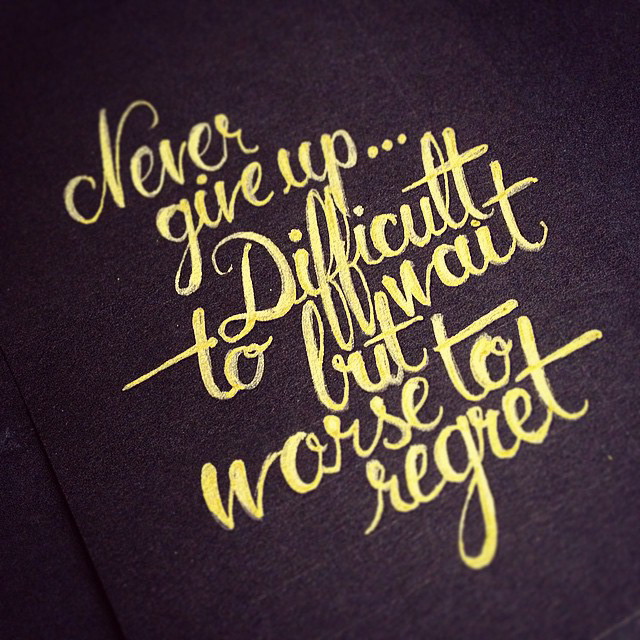 Never
give up...
Difficult
to wait
but
worse to
regret